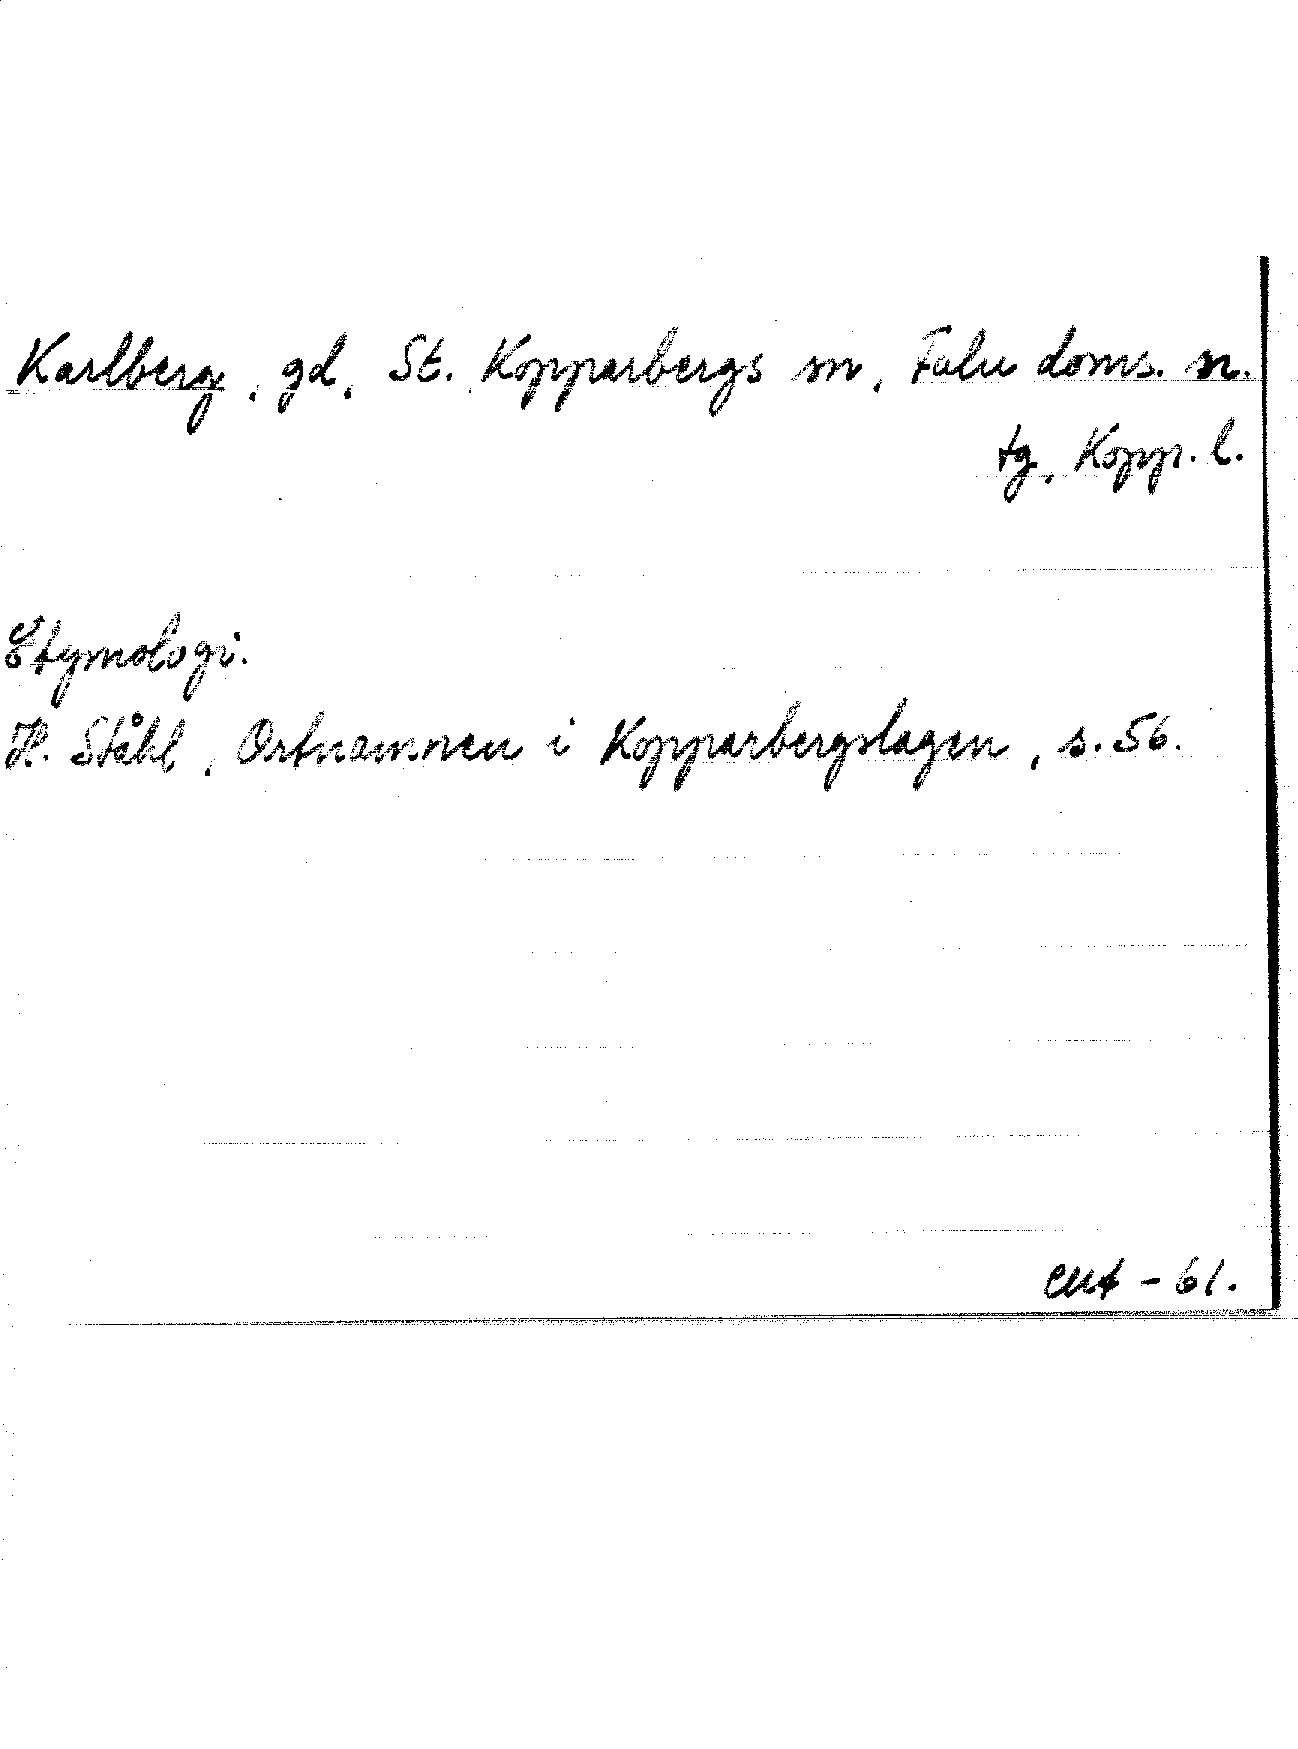 Karlberg, gd, St. Kopparbergs sn, Falu doms. n.
tg, Kopp. l.
Etymologi.
H. Ståhl, Ortnamnen i Kopparbergslagen, s. 56.
- 61.